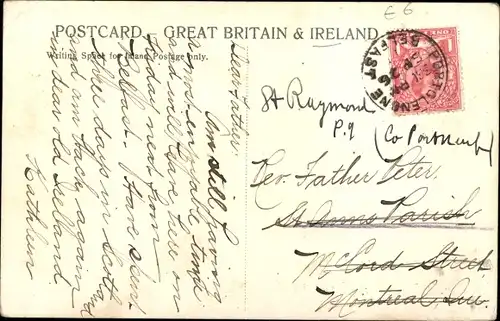 E6
POSTCARD – GREAT BRITAIN & IRELAND
Writing Space for Inland Postage only.
Dear Father.
Am still having
a most enjoyable time
and will leave here on
today next from
Belfast. Have spent
over days in Scotland
and am back again
in dear old Ireland.
Kathleen
BELFAST
ONE
St Raymond
P.Q
(Co Portneuf)
Rev. Father Peter.
St Anns Parish
McCord Street
Montreal, Que.